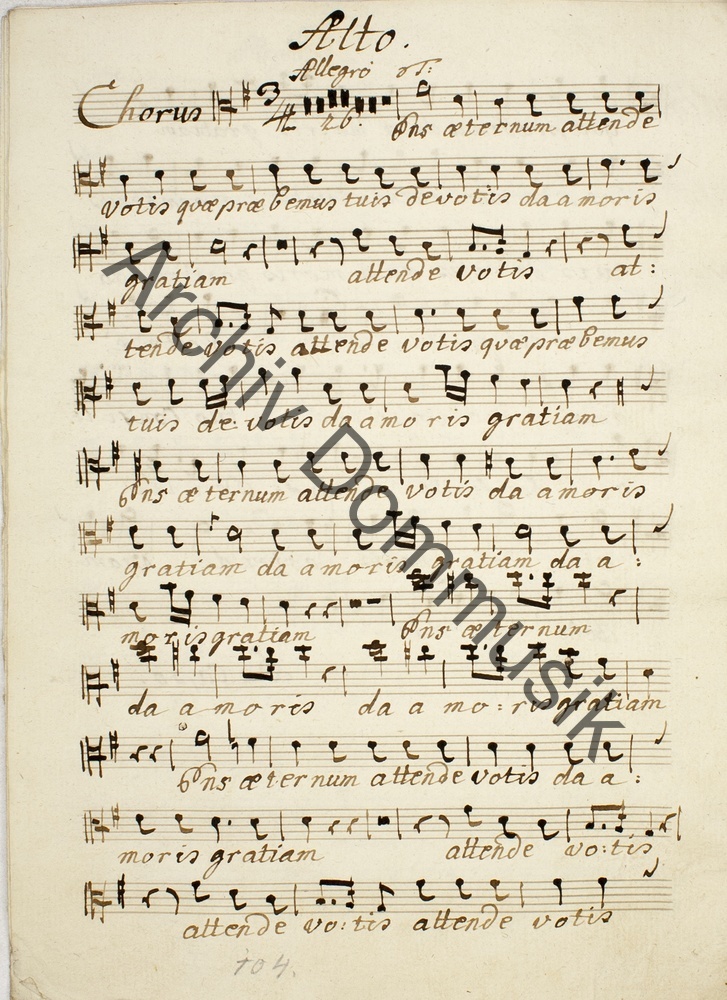 Alto.
Allegro
Chorus 3/4 26.
Ens æternum attende
votis quæ præbemus tuis devotis da amoris
gratiam attende votis at:
tende votis attende votis quæ præbemus
tuis de: votis da amoris gratiam
Ens æternum attende votis da amoris
gratiam da amoris gratiam da a:
moris gratiam Ens æternum
da amoris da a mo: ris gratiam
Ens æternum attende votis da a:
moris gratiam attende vo: tis
attende vo: tis attende votis
104.
Archiv Dommusik